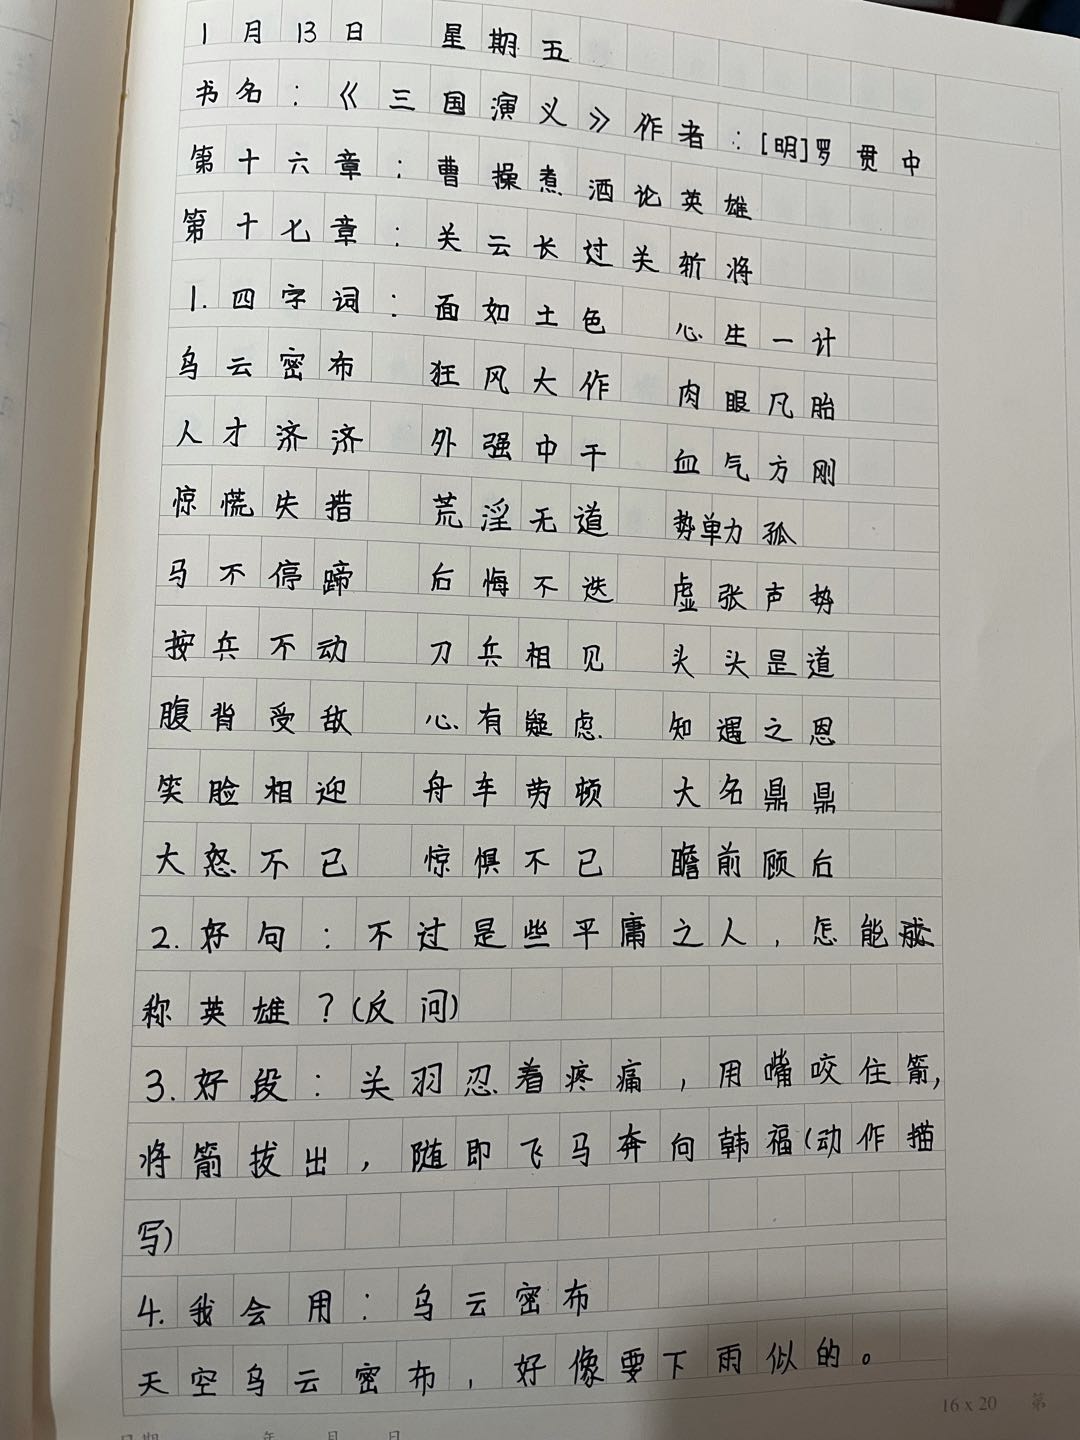 1月13日 星期五
书名：《三国演义》作者：[明]罗贯中
第十六章：曹操煮酒论英雄
第十七章：关云长过关斩将
1.四字词：面如土色 心生一计
乌云密布 狂风大作 肉眼凡胎
人才济济 外强中干 血气方刚
惊慌失措 荒淫无道 势单力孤
马不停蹄 后悔不迭 虚张声势
按兵不动 刀兵相见 头头是道
腹背受敌 心有疑虑 知遇之恩
笑脸相迎 舟车劳顿 大名鼎鼎
大怒不已 惊惧不已 瞻前顾后
2.好句：不过是些平庸之人，怎能
称英雄？(反问)
3.好段：关羽忍着疼痛，用嘴咬住箭,
将箭拔出，随即飞马奔向韩福(动作描
写)
4.我会用：乌云密布
天空乌云密布，好像要下雨似的。
16x20 第
日期 年 月 日